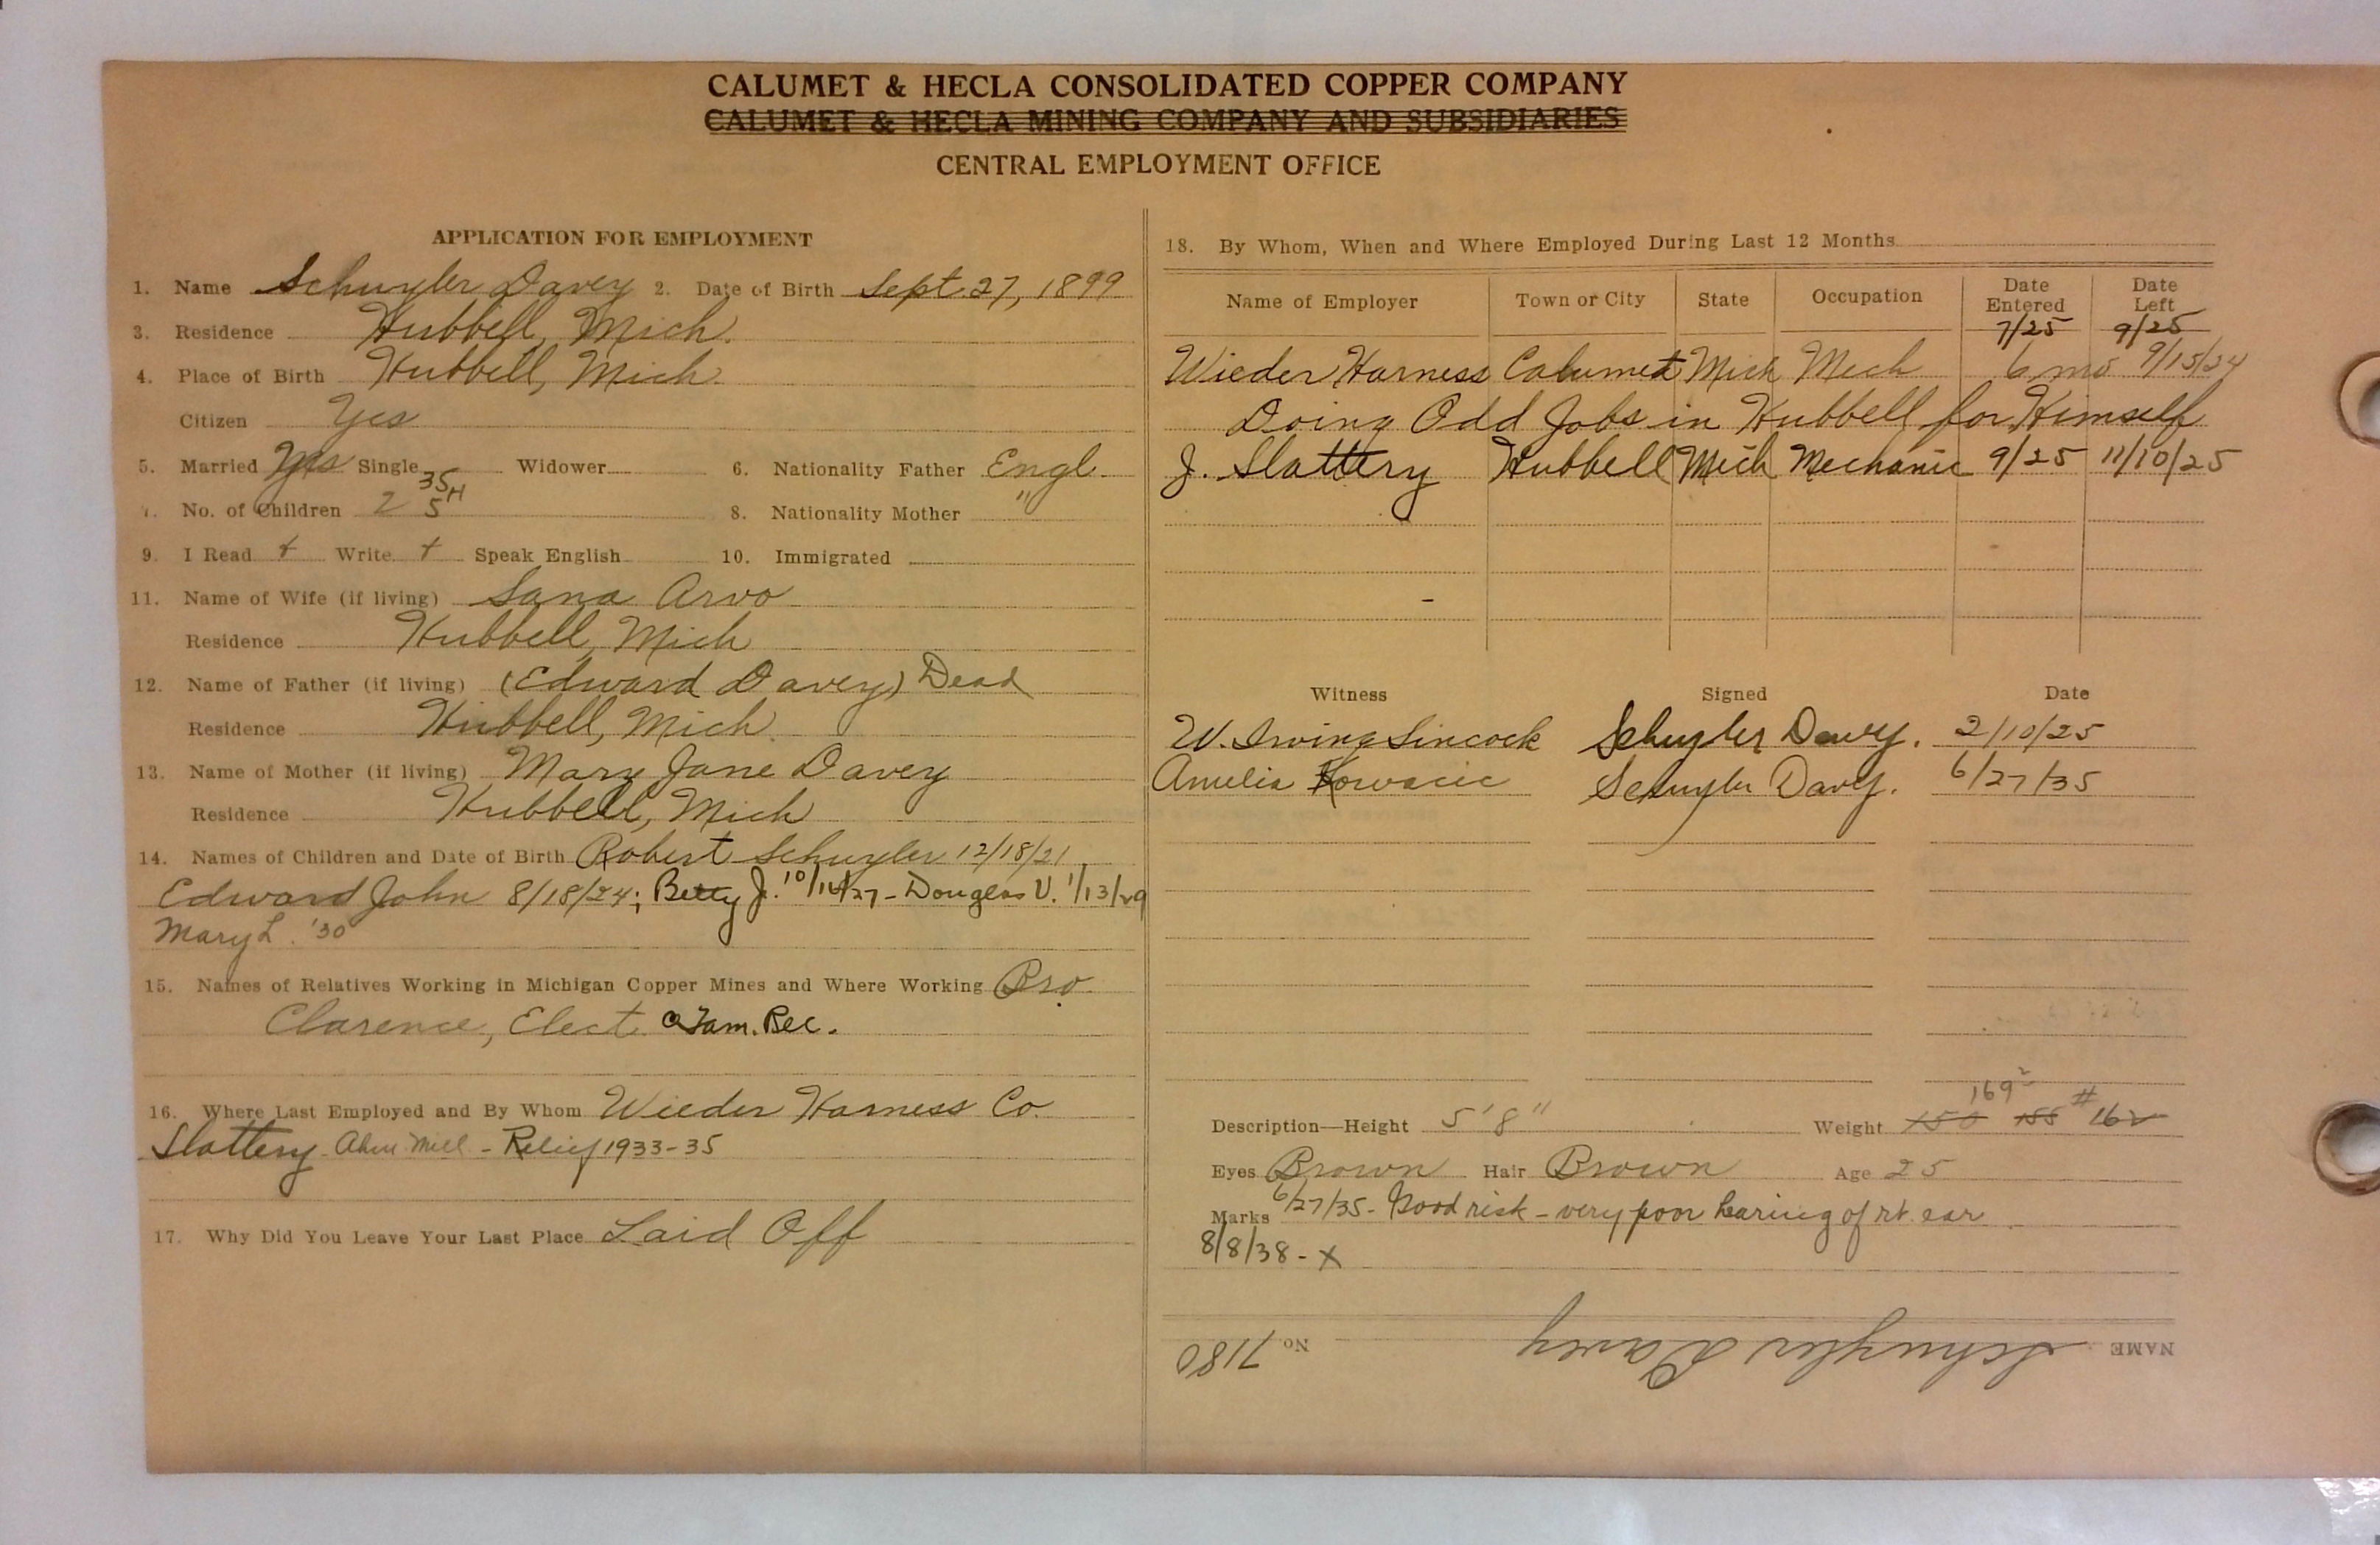 CALUMET & HECLA CONSOLIDATED COPPER COMPANY
CALUMET & HECLA MINING COMPANY AND SUBSIDIARIES
CENTRAL EMPLOYMENT OFFICE
APPLICATION FOR EMPLOYMENT
1. Name Schuyler Davey 2. Date of Birth Sept. 27, 1899
3. Residence Hubbell, Mich.
4. Place of Birth Hubbell, Mich.
Citizen Yes
5. Married Yes Single Widower 6. Nationality Father Engl.
35
7. No. of Children 2 5 8. Nationality Mother "
9. I Read + Write + Speak English 10. Immigrated
11. Name of Wife (if living) Sana Arvo
Residence Hubbell, Mich
12. Name of Father (if living) (Edward Davey) Dead
Residence Hubbell, Mich.
13. Name of Mother (if living) Mary Jane Davey
Residence Hubbell, Mich
14. Names of Children and Date of Birth Robert Schuyler 12/18/21
Edward John 8/18/24; Betty J. 10/ /27 - Douglas V. 1/13/29
Mary L. '30
15. Names of Relatives Working in Michigan Copper Mines and Where Working Bro.
Clarence, Elect. Tam. Rec.
16. Where Last Employed and By Whom Wieder Harness Co.
Slattery - Mill - Relief 1933-35
17. Why Did You Leave Your Last Place Laid Off
18. By Whom, When and Where Employed During Last 12 Months
Name of Employer Town or City State Occupation Date Entered Date Left
7/25 9/25
Wieder Harness Calumet Mich Mech 6 mo 9/15/24
Doing Odd Jobs in Hubbell for Himself
J. Slattery Hubbell Mich Mechanic 9/25 11/10/25
Witness Signed Date
W. Irving Sincock Schuyler Davey. 2/10/25
Amelia Kowacic Schuyler Davy. 6/27/35
169
Description—Height 5'8" Weight 150 155 # 162
Eyes Brown Hair Brown Age 25
Marks 6/27/35 - Good risk - very poor hearing of rt. ear
8/8/38 - X
NAME Schuyler Davey No. 7180